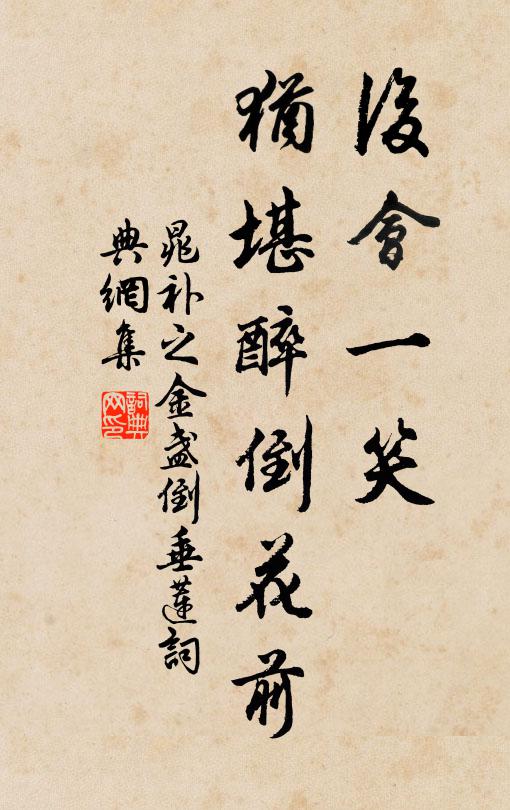 後會一笑
猶堪醉倒花前
晁补之金盏倒垂蓮詞
典網集
詞典网印